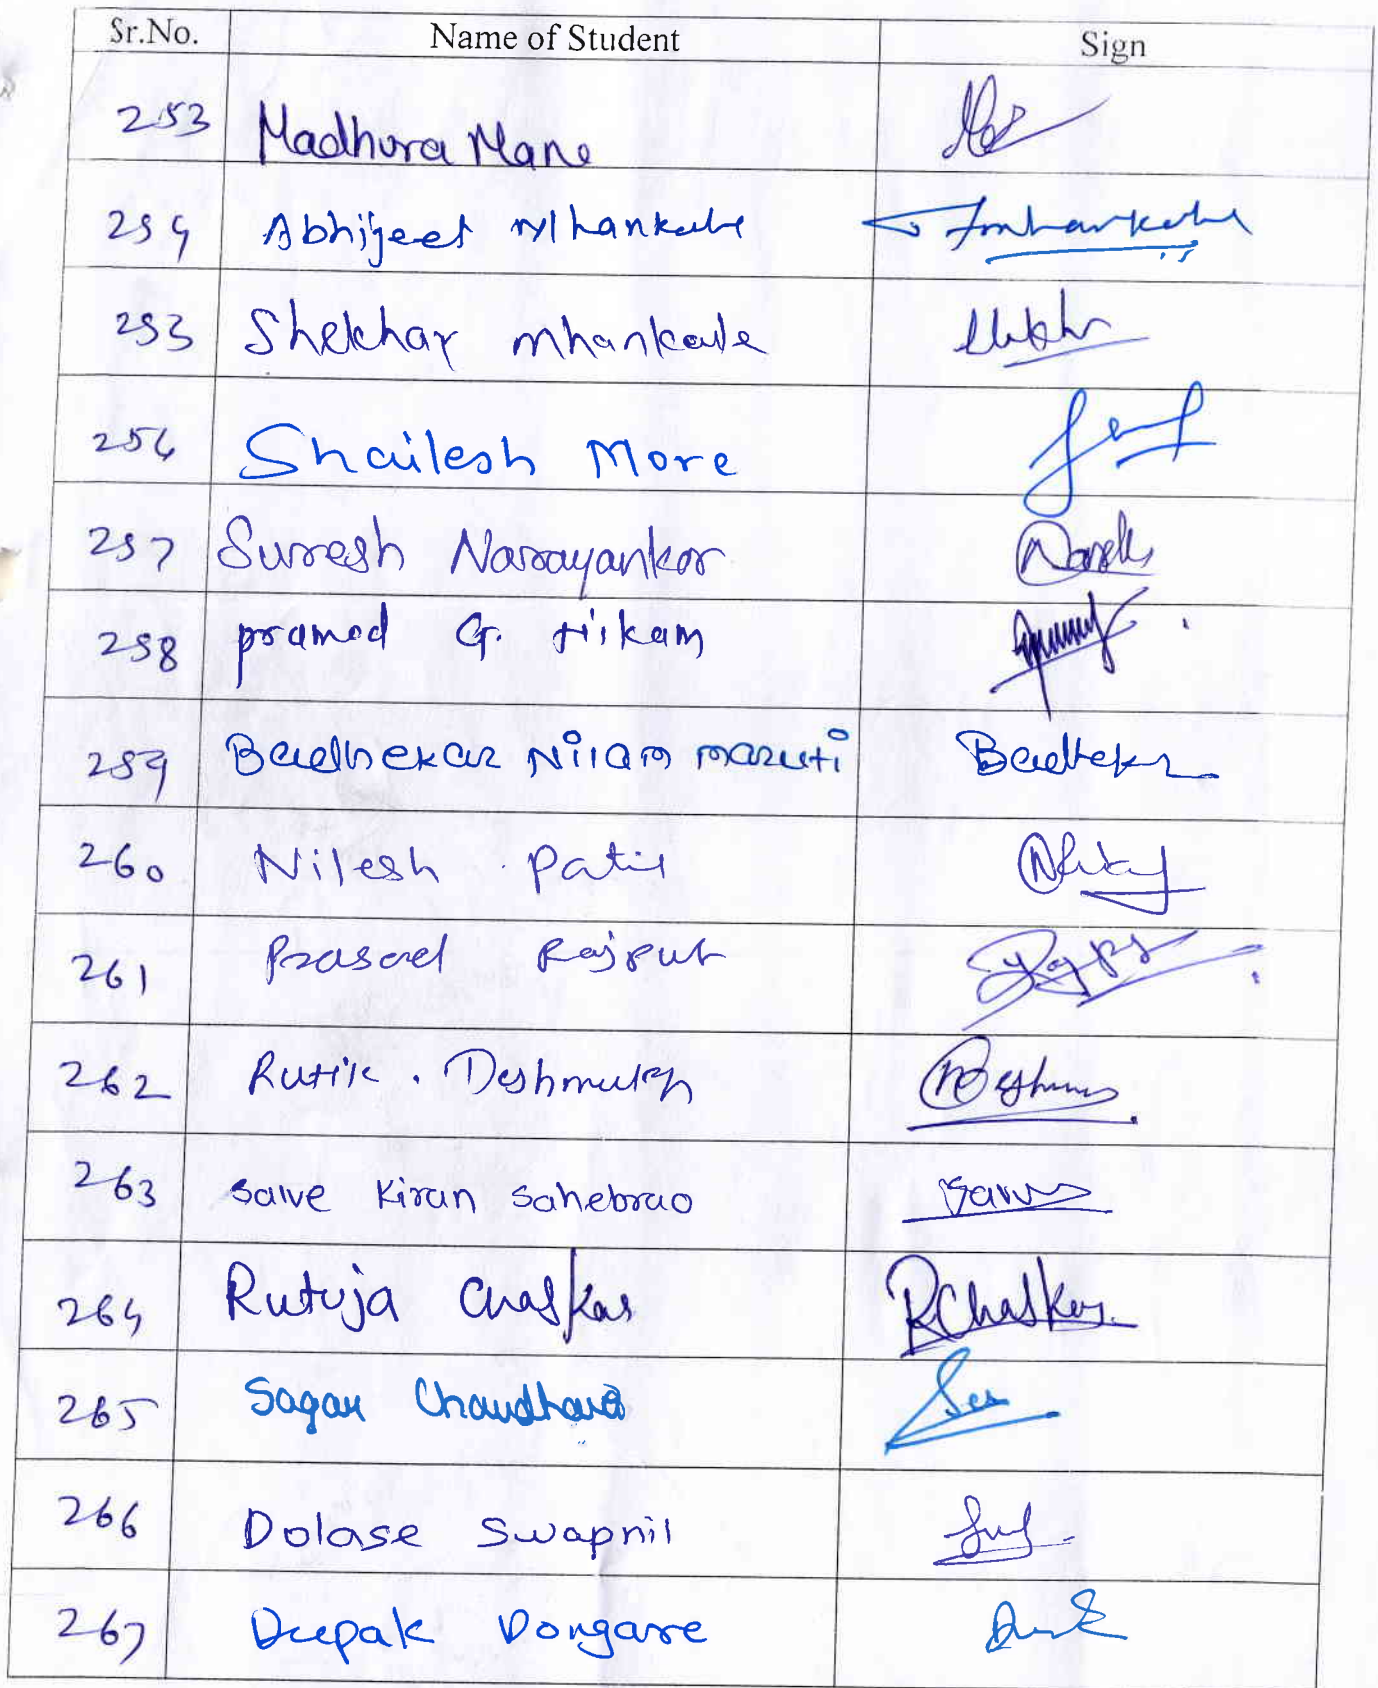 Sr.No. Name of Student Sign
253 Madhura Mane
254 Abhijeet Mhankale Amhankale
253 Shekhar mhankale
256 Shailesh More
257 Suresh Narayankar
258 pramod G. Nikam
259 Badhekar Nilam maruti Badhekar
260 Nilesh Patil
261 Prasad Rajput
262 Rutik . Deshmukh
263 salve Kiran sahebrao
264 Rutuja Chaskar RChaskar
265 Sagar Chaudhari
266 Dolase Swapnil
267 Deepak Dongare